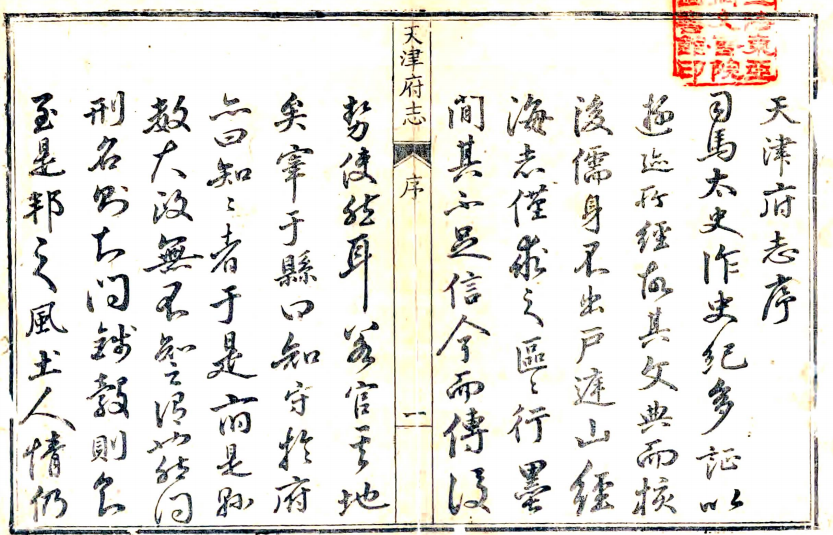 天津府志序
司馬太史作史紀多証以
遊跡所經故其文典而核
後儒身不出戶庭山經
海志僅求之區〻行墨
間其不足信今而傳後
天津府志 序 一
勢使然耳若官其地
矣宰于縣曰知守於府
亦曰知〻者于是府是縣
教大政無不知之謂也然問
刑名則知問錢穀則知
至是邦之風土人情仍
東亞
書院
印